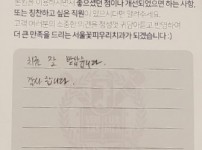 좋으셨던 점이나 개선되었으면 하는 사항,
또는 칭찬하고 싶은 직원이 있으시다면 알려주세요.
더 큰 만족을 드리는 서울꽃피우리치과가 되겠습니다 :)
치료 잘 받았습니다.
감사합니다.